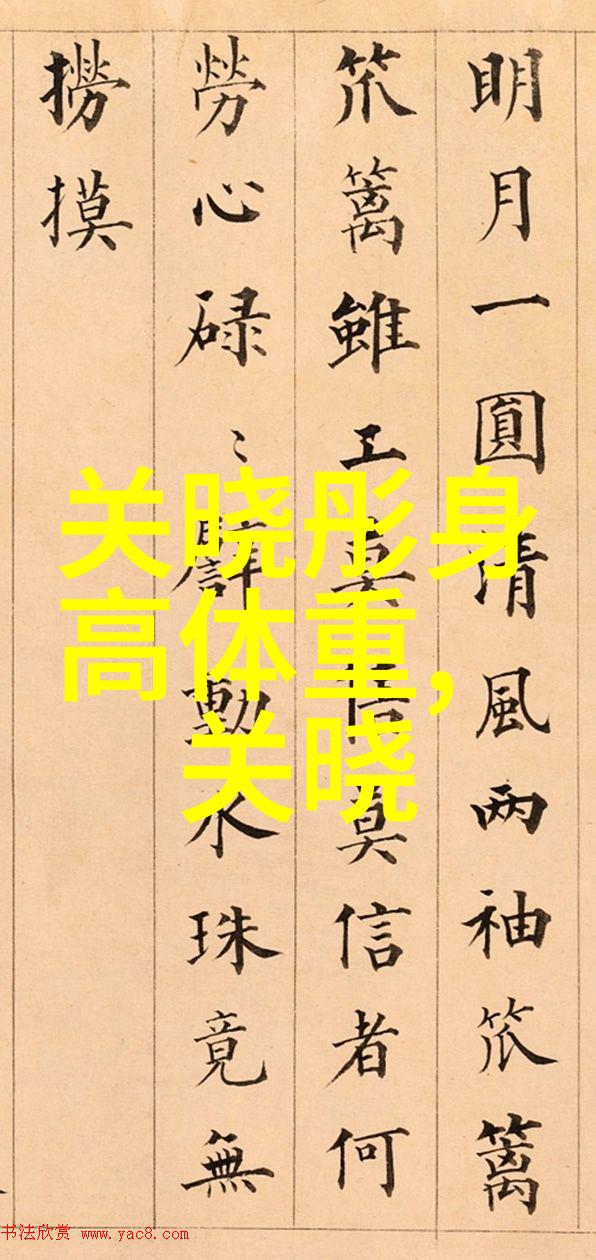 明月一圓清風两袖笊篱
笊篱雖工莫信莫信者何
勞心碌〻譬動水珠竟無
撈摸
关晓彤身
高体重,
关晓
书法欣赏 www.yac8.com